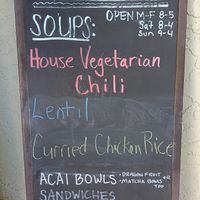 SOUPS:
OPEN M-F 8-5
Sat 8-4
Sun 9-4
House Vegetarian
Chili
Lentil
Curried Chicken Rice
ACAI BOWLS
• DRAGON FRUIT OR
• MATCHA BOWLS
TOO
SANDWICHES